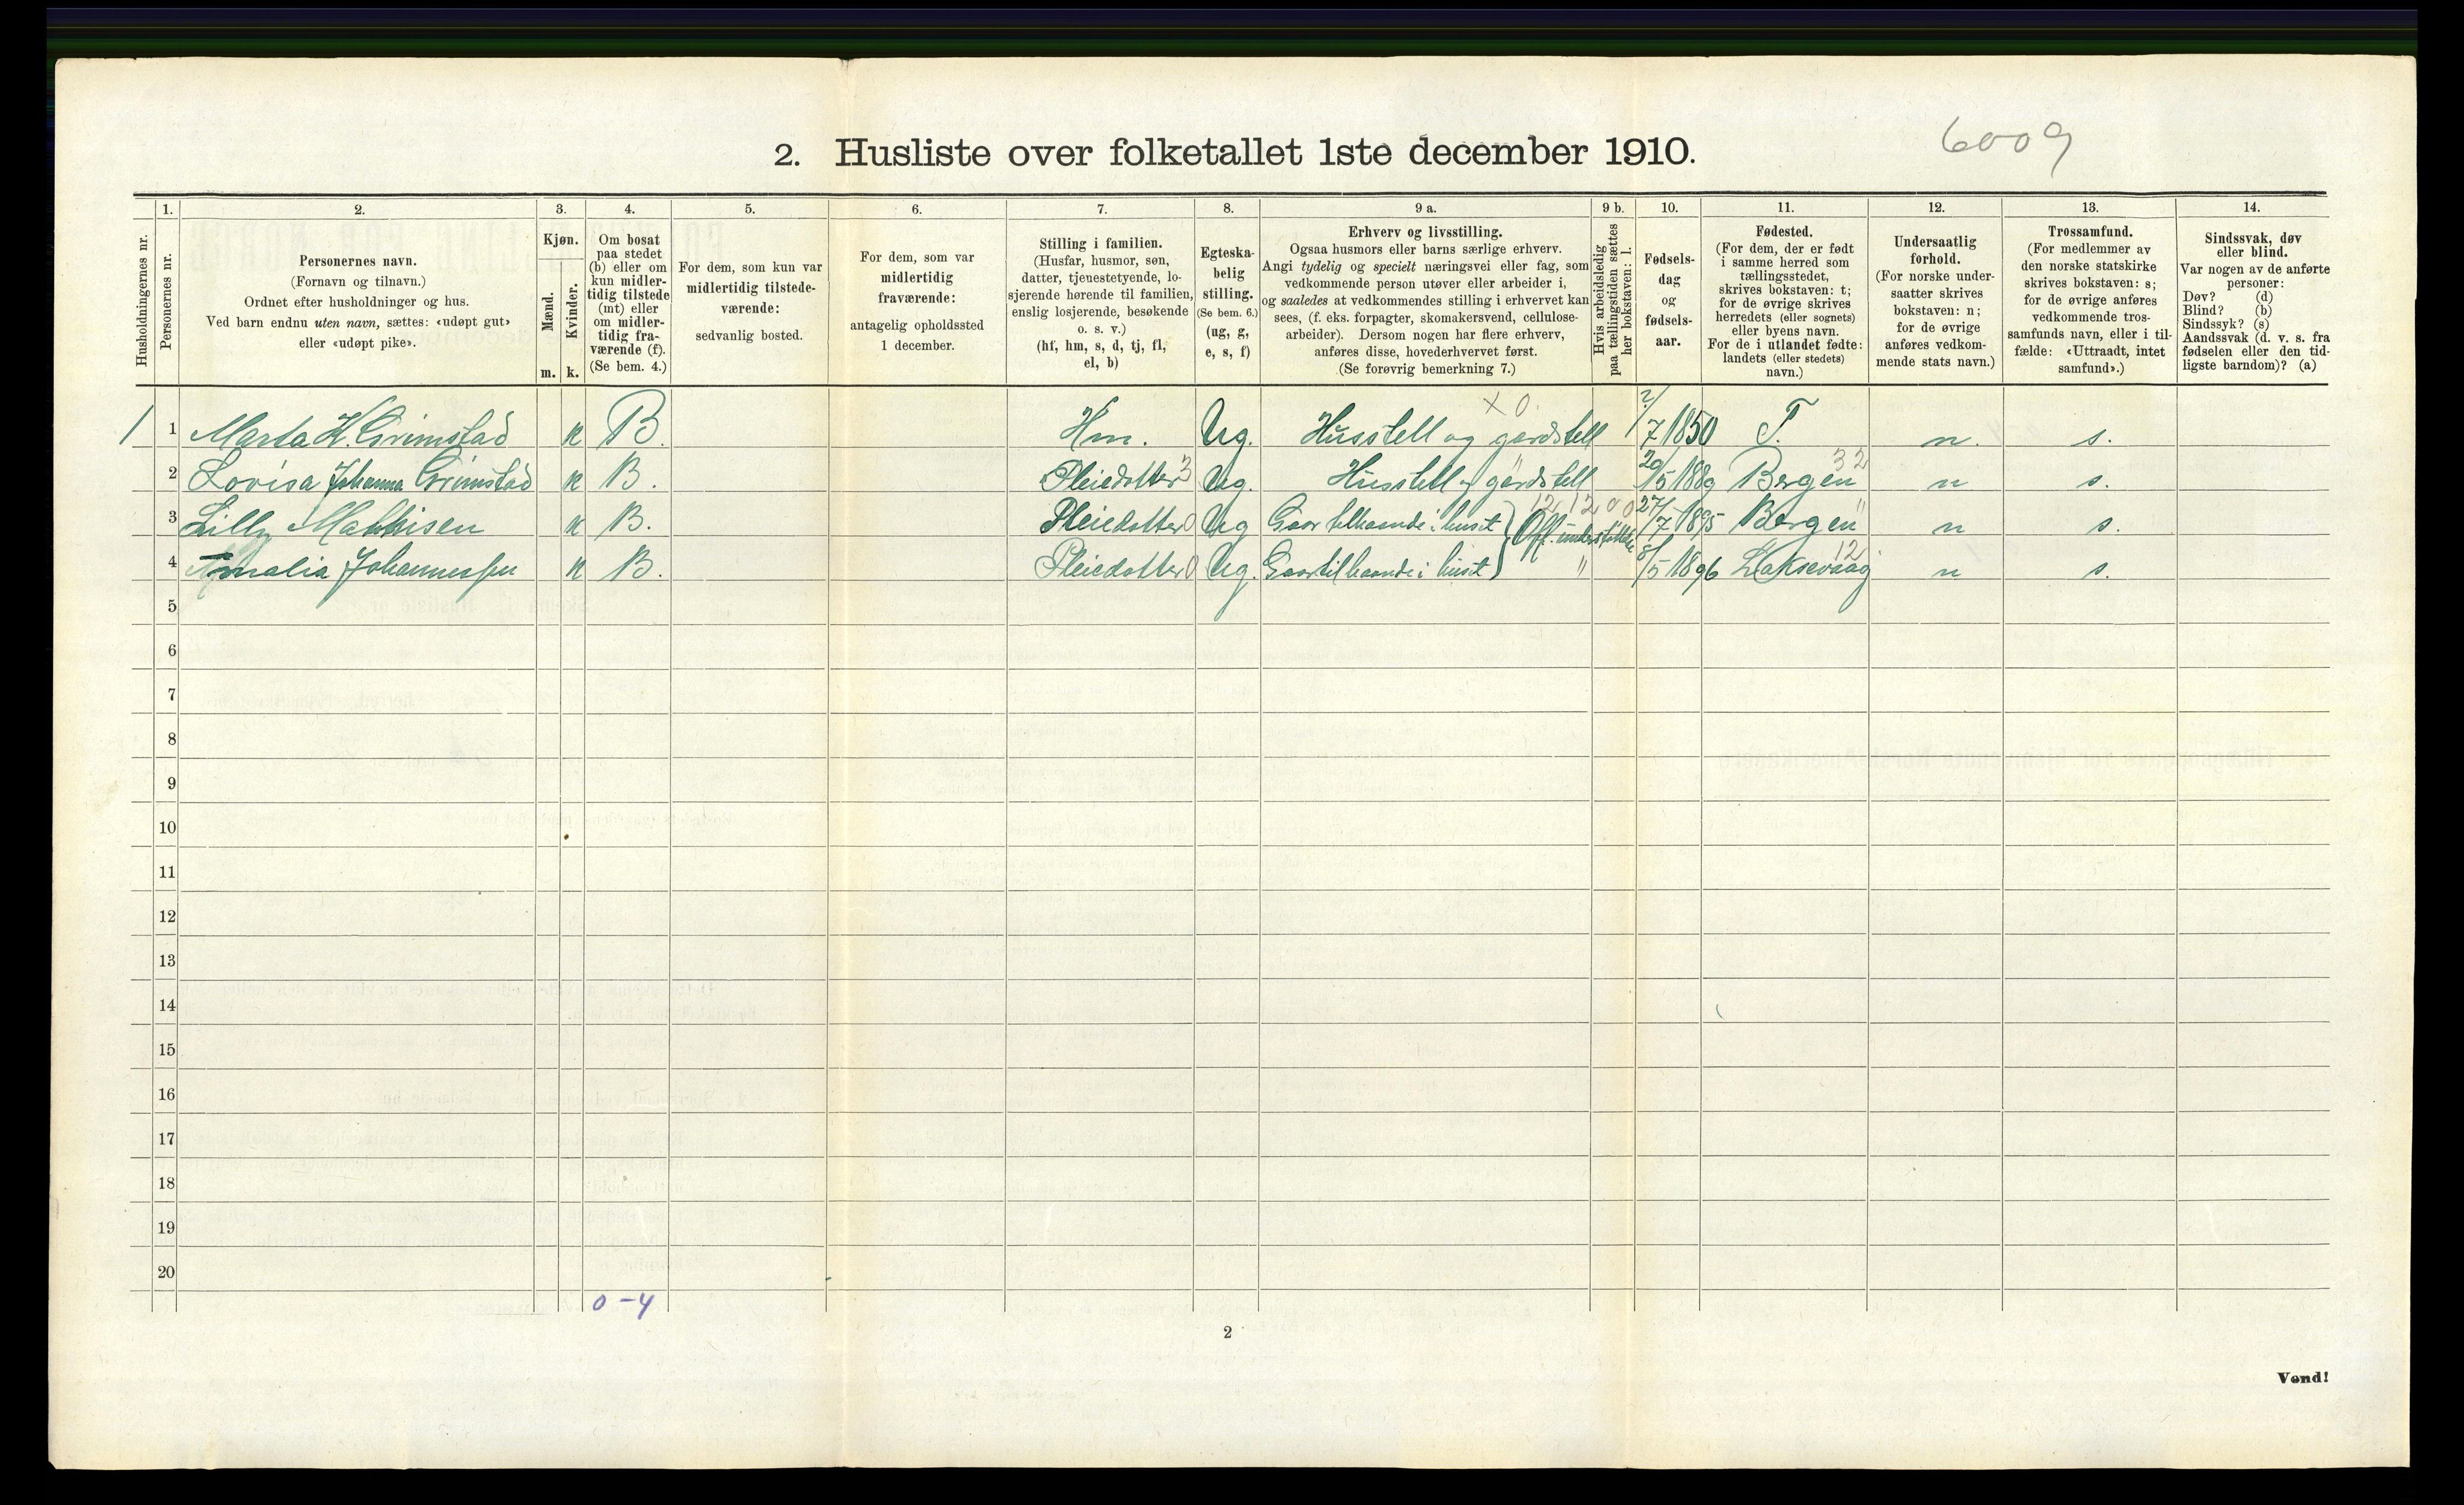 2. Husliste over folketallet 1ste december 1910.
6009
Husholdningernes nr.
1.
Personernes nr.
2.
Personernes navn.
(Fornavn og tilnavn.)
Ordnet efter husholdninger og hus.
Ved barn endnu uten navn, sættes: «udøpt gut»
eller «udøpt pike».
3.
Kjøn.
Mænd.
Kvinder.
m.
k.
4.
Om bosat
paa stedet
(b) eller om
kun midler-
tidig tilstede
(mt) eller
om midler-
tidig fra-
værende (f).
(Se bem. 4.)
5.
For dem, som kun var
midlertidig tilstede-
værende:
sedvanlig bosted.
6.
For dem, som var
midlertidig
fraværende:
antagelig opholdssted
1 december.
7.
Stilling i familien.
(Husfar, husmor, søn,
datter, tjenestetyende, lo-
sjerende hørende til familien,
enslig losjerende, besøkende
o. s. v.)
(hf, hm, s, d, tj, fl,
el, b)
8.
Egteska-
belig
stilling.
(Se bem. 6.)
(ug, g,
e, s, f)
9 a.
Erhverv og livsstilling.
Ogsaa husmors eller barns særlige erhverv.
Angi tydelig og specielt næringsvei eller fag, som
vedkommende person utøver eller arbeider i,
og saaledes at vedkommendes stilling i erhvervet kan
sees, (f. eks. forpagter, skomakersvend, cellulose-
arbeider). Dersom nogen har flere erhverv,
anføres disse, hovederhvervet først.
(Se forøvrig bemerkning 7.)
9 b.
Hvis arbeidsledig
paa tællingstiden sættes
her bokstaven: l.
10.
Fødsels-
dag
og
fødsels-
aar.
11.
Fødested.
(For dem, der er født
i samme herred som
tællingsstedet,
skrives bokstaven: t;
for de øvrige skrives
herredets (eller sognets)
eller byens navn.
For de i utlandet fødte:
landets (eller stedets)
navn.)
12.
Undersaatlig
forhold.
(For norske under-
saatter skrives
bokstaven: n;
for de øvrige
anføres vedkom-
mende stats navn.)
13.
Trossamfund.
(For medlemmer av
den norske statskirke
skrives bokstaven: s;
for de øvrige anføres
vedkommende tros-
samfunds navn, eller i til-
fælde: «Uttraadt, intet
samfund».)
14.
Sindssvak, døv
eller blind.
Var nogen av de anførte
personer:
Døv? (d)
Blind? (b)
Sindssyk? (s)
Aandssvak (d. v. s. fra
fødselen eller den tid-
ligste barndom)? (a)
1 1 Marta K. Grimstad k B. Hm. Ug. Husstell og gardstell x 0. 7 1850 T. n. s.
2 Lovisa Johanna Grimstad k B. Pleiedotter 3 Ug. Husstell og gardstell " 20/5 1889 Bergen 32 n s.
3 Lilly Mathisen k B. Pleiedotter 0 Ug Gaar tilhaande i huset) Off. understøttede 12 12 00 27/7 1895 Bergen " n s.
4 Amalia Johannessen k B. Pleiedotter 0 Ug. Gaar tilhaande i huset) " 8/5 1896 Laksevaag 12 n s.
5
6
7
8
9
10
11
12
13
14
15
16
17
18
19
20
0-4
2
Vend!